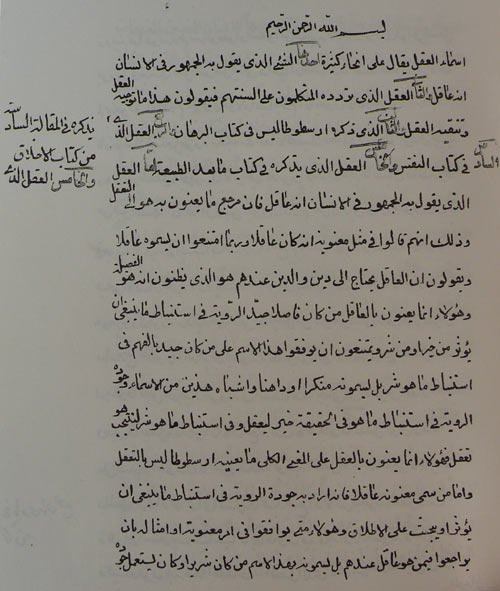 بسم الله الرحمن الرحيم
اسماء العقل يقال على انحاء كثيرة احدها الشيء الذى يقول به الجمهور فى الانسان
انه عاقل والثانى العقل الذى يردده المتكلمون على السنتهم فيقولون هذا مما يوجبه العقل
وينفيه العقل والثالث الذى ذكره ارسطوطاليس فى كتاب البرهان والرابع العقل الذى
يذكره فى المقالة السادسة
من كتاب الاخلاق
والخامس العقل الذى
فى كتاب النفس والسادس العقل الذى يذكره فى كتاب ما بعد الطبيعة اما العقل
الذى يقول به الجمهور فى الانسان انه عاقل فان مرجع ما يعنون به هو الى التعقل
وذلك انهم قالوا فى مثل معوية انه كان عاقلا وربما امتنعوا ان يسموه عاقلا
ويقولون ان العاقل يحتاج الى دين والدين عندهم هو الذى يظنون انه هو الفضيلة
وهؤلاء انما يعنون بالعاقل من كان فاضلا جيد الروية فى استنباط ما ينبغى ان
يؤثر من خير او من شر ويمتنعون ان يوقعوا هذا الاسم على من كان جيد الفهم فى
استنباط ما هو شر بل يسمونه منكرا او داهنا واشباه هذين من الاسماء وجودة
الروية فى استنباط ما هو فى الحقيقة خير ليفعل وفى استنباط ما هو شر ليتجنب هو
تعقل فهؤلاء انما يعنون بالعقل على المعنى الكلى ما يعنيه ارسطوطاليس بالتعقل
واما من سمى معوية عاقلا فانه اراد به جودة الروية فى استنباط ما ينبغى ان
يؤثر او يجتنب على الاطلاق وهؤلاء متى يوافقوا فى امر معوية او امثاله بان
يراجعوا فيمن هو عاقل عندهم بل يسمونه بهذا الاسم من كان شريرا وكان يستعمل جودة